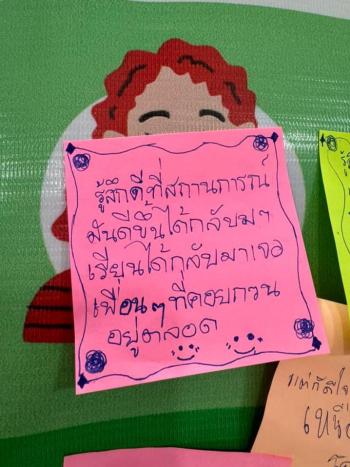 รู้สึกดีที่สถานการณ์
มันดีขึ้นได้กลับมา
เรียนได้กลับมาเจอ
เพื่อนๆที่คอยกวน
อยู่ตลอด
แต่ก็ดีใจ